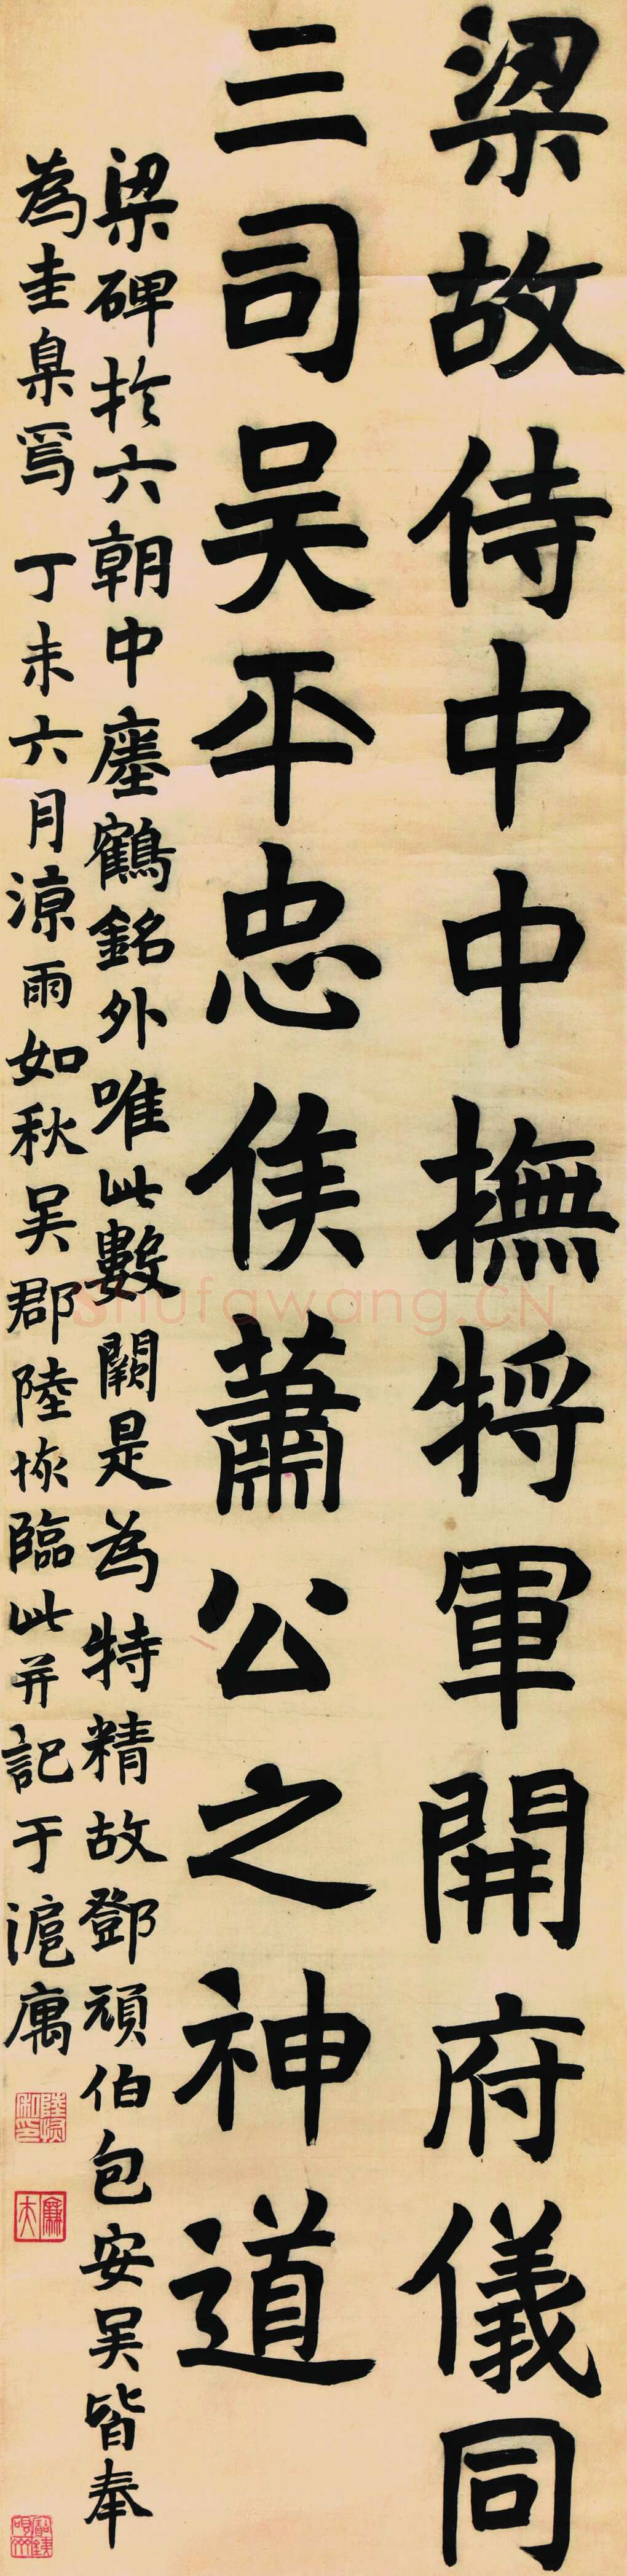 梁故侍中中撫將軍開府儀同
三司吳平忠侯蕭公之神道
梁碑於六朝中瘞鶴銘外唯此數闕是為特精故鄧頑伯包安吳皆奉
為圭臬焉 丁未六月涼雨如秋吳郡陸恢臨此并記于滬寓
陸恢私印
廉夫
Shufawang.CN